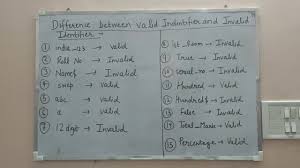 Difference between Valid Indintifier and Invalid
Identifier :-
① india_us → Valid
② Roll No → Invalid
③ Name$ → Invalid
④ swep → Valid
⑤ abc → Valid
⑥ a → Valid
⑦ 12 digit → Invalid
⑧ 1st_Room → Invalid
⑨ True → Invalid
⑩ serial-no → Invalid
⑪ Hundred → Valid
⑫ Hundred$ → Invalid
⑬ False → Invalid
⑭ Total_Marks → Valid
⑮ Percentage → Valid